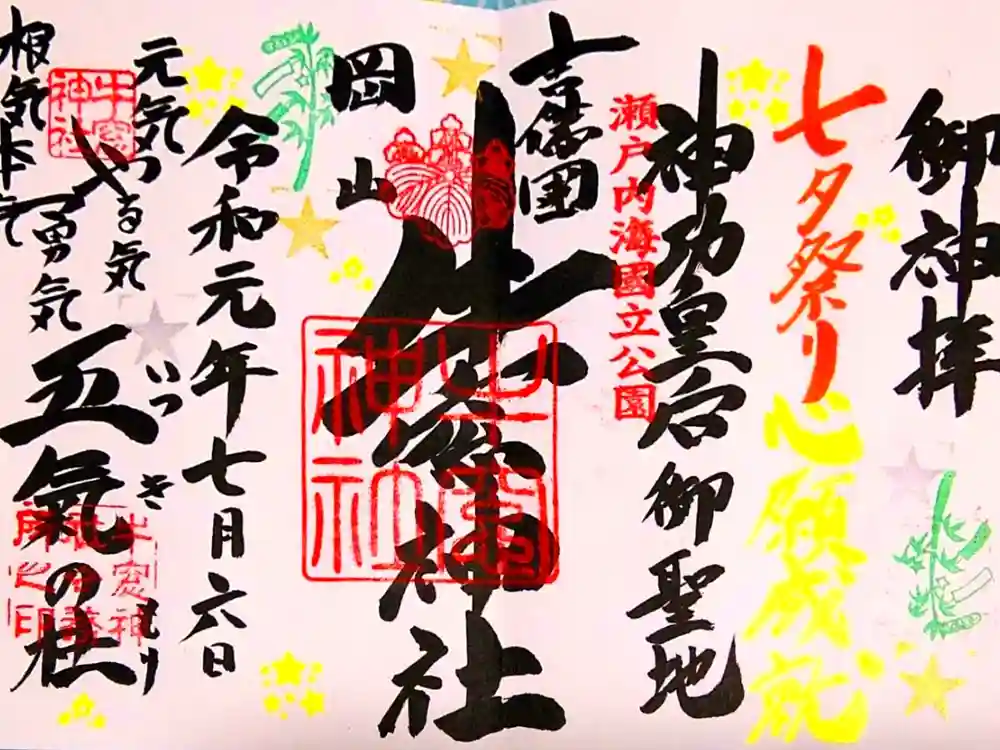 御神拝
七夕祭り
心願成就
神功皇后御聖地
瀬戸内海國立公園
吉備国
牛窓神社
牛窓神社
岡山
令和元年七月六日
元気
やる気
勇気
根気
本気
牛窓神社
いつきもり
五氣の杜
牛窓神
之印